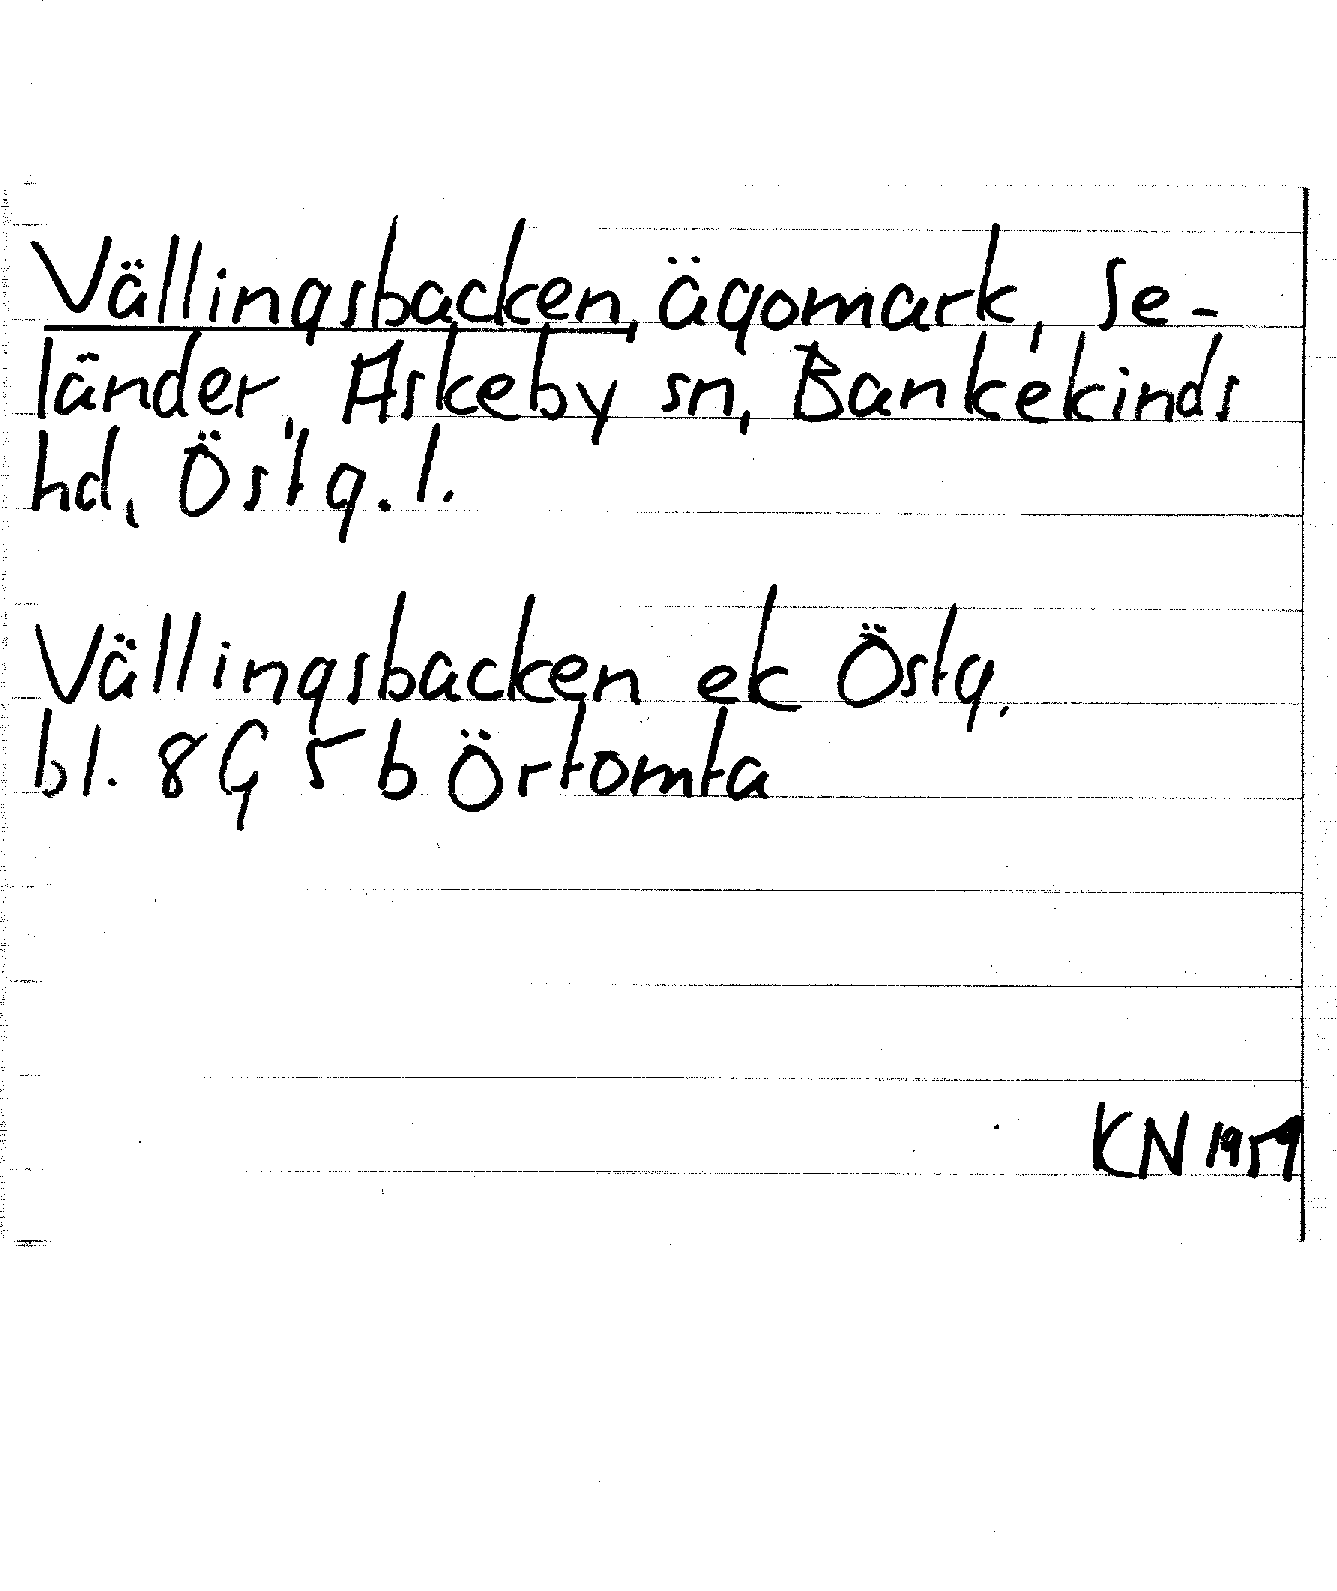 Vällingsbacken, ägomark, Se-
länder, Askeby sn, Bankekinds
hd, Östg. l.
Vällingsbacken ek Östg.
bl. 8G 5b Örtomta
KN 1959